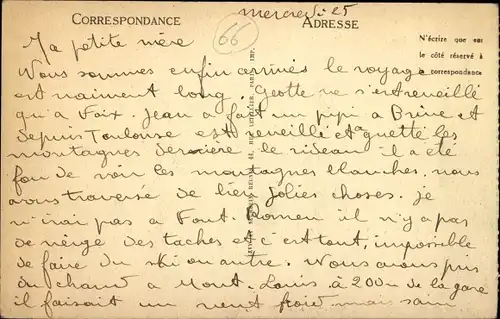 CORRESPONDANCE
ADRESSE
mercredi 25
66
N'écrire que sur
le côté réservé à
la correspondance
Ma petite mère
Nous sommes enfin arrivés le voyage
est vraiment long. Geotte ne s'est réveillé
qu'a Foix. Jean a fait un pipi a Brive et
depuis Toulouse est réveillé et a guetté les
montagnes derrière le rideau il a été
fou de voir les montagnes blanches. nous
avons traversé de bien jolies choses. je
n'irai pas a Font-Romeu il n'y a pas
de neige des taches et c'est tout, impossible
de faire du ski ou autre. Nous avons pris
du chaud a Mont-Louis à 200m de la gare
il faisait un vent froid mais sain